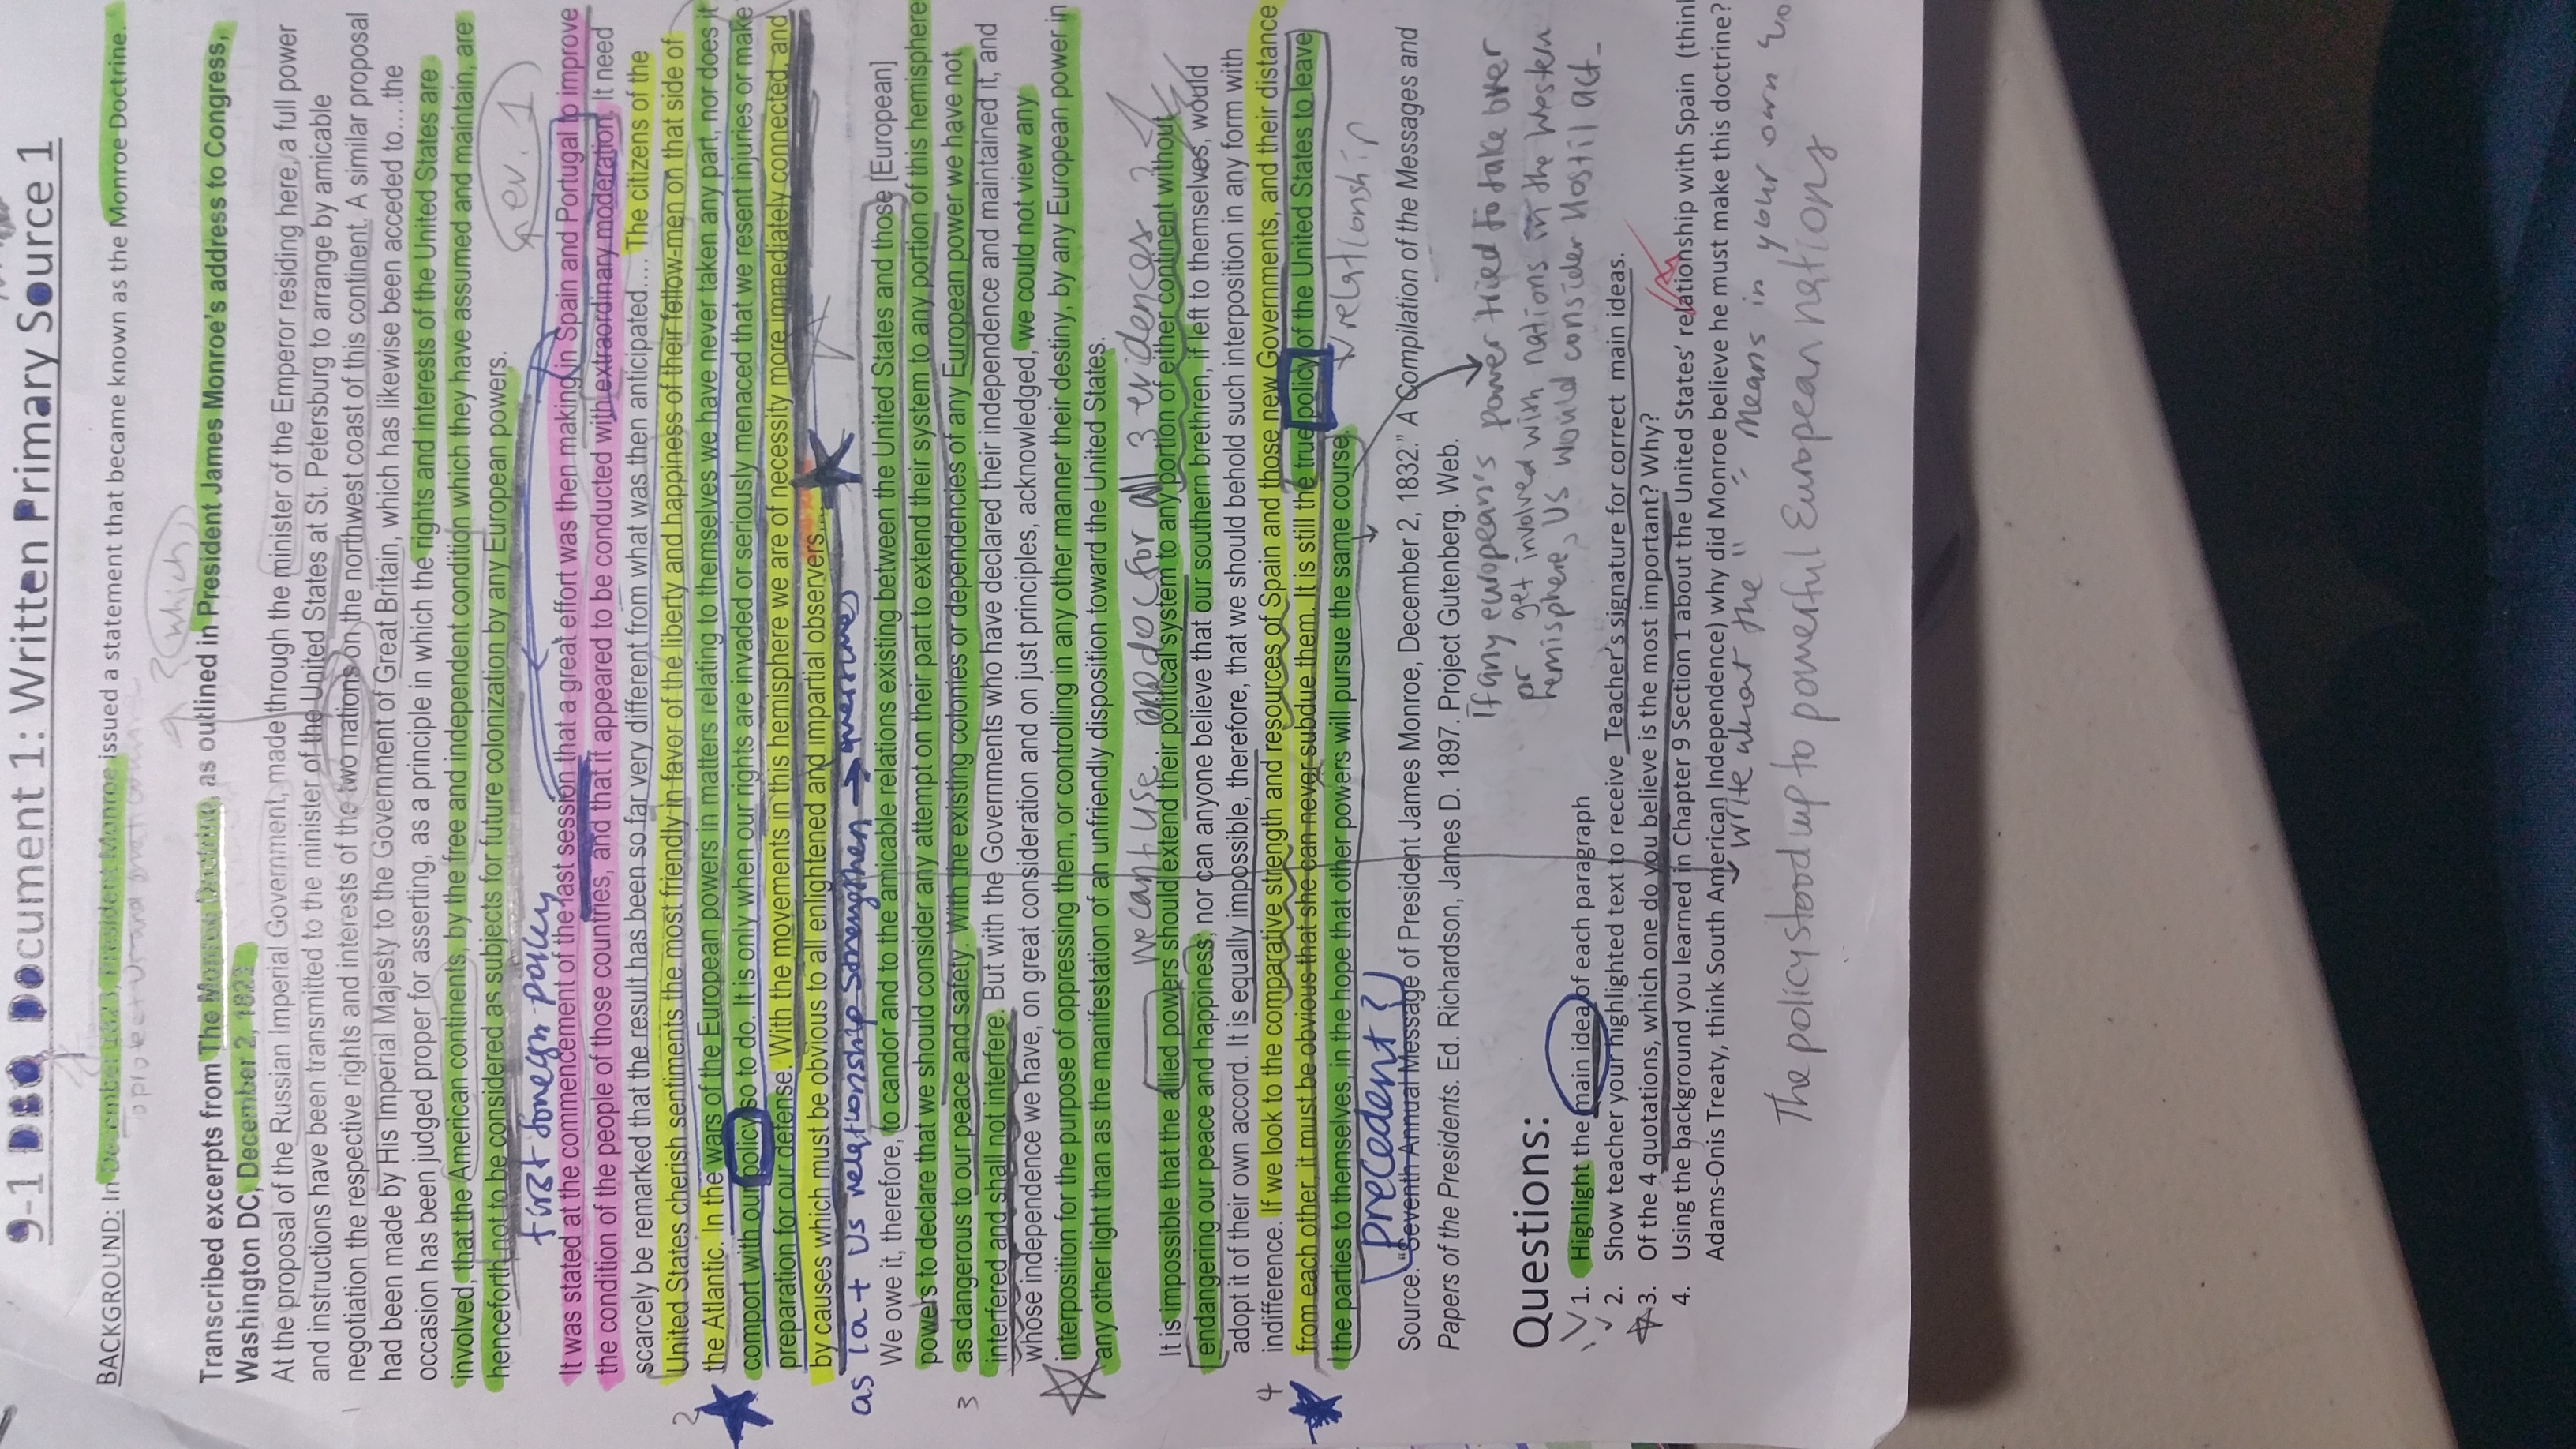 9-1 DBQ Document 1: Written Primary Source 1
BACKGROUND: In December 1823, President Monroe issued a statement that became known as the Monroe Doctrine.
which
Transcribed excerpts from The Monroe Doctrine, as outlined in President James Monroe's address to Congress,
Washington DC, December 2, 1823:
1 At the proposal of the Russian Imperial Government, made through the minister of the Emperor residing here, a full power
and instructions have been transmitted to the minister of the United States at St. Petersburg to arrange by amicable
negotiation the respective rights and interests of the two nations on the northwest coast of this continent. A similar proposal
had been made by His Imperial Majesty to the Government of Great Britain, which has likewise been acceded to....the
occasion has been judged proper for asserting, as a principle in which the rights and interests of the United States are
involved that the American continents, by the free and independent condition which they have assumed and maintain, are
henceforth not to be considered as subjects for future colonization by any European powers.
first foreign policy
ev. 1
It was stated at the commencement of the last session that a great effort was then making in Spain and Portugal to improve
the condition of the people of those countries, and that it appeared to be conducted with extraordinary moderation. It need
scarcely be remarked that the result has been so far very different from what was then anticipated.... The citizens of the
2 United States cherish sentiments the most friendly in favor of the liberty and happiness of their fellow-men on that side of
the Atlantic. In the wars of the European powers in matters relating to themselves we have never taken any part, nor does it
comport with our policy so to do. It is only when our rights are invaded or seriously menaced that we resent injuries or make
preparation for our defense. With the movements in this hemisphere we are of necessity more immediately connected, and
by causes which must be obvious to all enlightened and impartial observers....
We owe it, therefore, to candor and to the amicable relations existing between the United States and those [European]
powers to declare that we should consider any attempt on their part to extend their system to any portion of this hemisphere
3 as dangerous to our peace and safety. With the existing colonies or dependencies of any European power we have not
interfered and shall not interfere. But with the Governments who have declared their independence and maintained it, and
whose independence we have, on great consideration and on just principles, acknowledged, we could not view any
interposition for the purpose of oppressing them, or controlling in any other manner their destiny, by any European power in
any other light than as the manifestation of an unfriendly disposition toward the United States.
we can use for all 3 evidences
It is impossible that the allied powers should extend their political system to any portion of either continent without
endangering our peace and happiness; nor can anyone believe that our southern brethren, if left to themselves, would
adopt it of their own accord. It is equally impossible, therefore, that we should behold such interposition in any form with
4 indifference. If we look to the comparative strength and resources of Spain and those new Governments, and their distance
from each other, it must be obvious that she can never subdue them. It is still the true policy of the United States to leave
the parties to themselves, in the hope that other powers will pursue the same course.
relationship
precedent
Source: "Seventh Annual Message of President James Monroe, December 2, 1832." A Compilation of the Messages and
Papers of the Presidents. Ed. Richardson, James D. 1897. Project Gutenberg. Web.
If any european's power tried to take over
or get involved with nations in the western
hemisphere, US would consider Hostil act.
Questions:
1. Highlight the main idea of each paragraph
2. Show teacher your highlighted text to receive Teacher's signature for correct main ideas.
3. Of the 4 quotations, which one do you believe is the most important? Why?
4. Using the background you learned in Chapter 9 Section 1 about the United States' relationship with Spain (think
Adams-Onis Treaty, think South American Independence) why did Monroe believe he must make this doctrine?
write what the " " means in your own wo
The policy stood up to powerful European nations